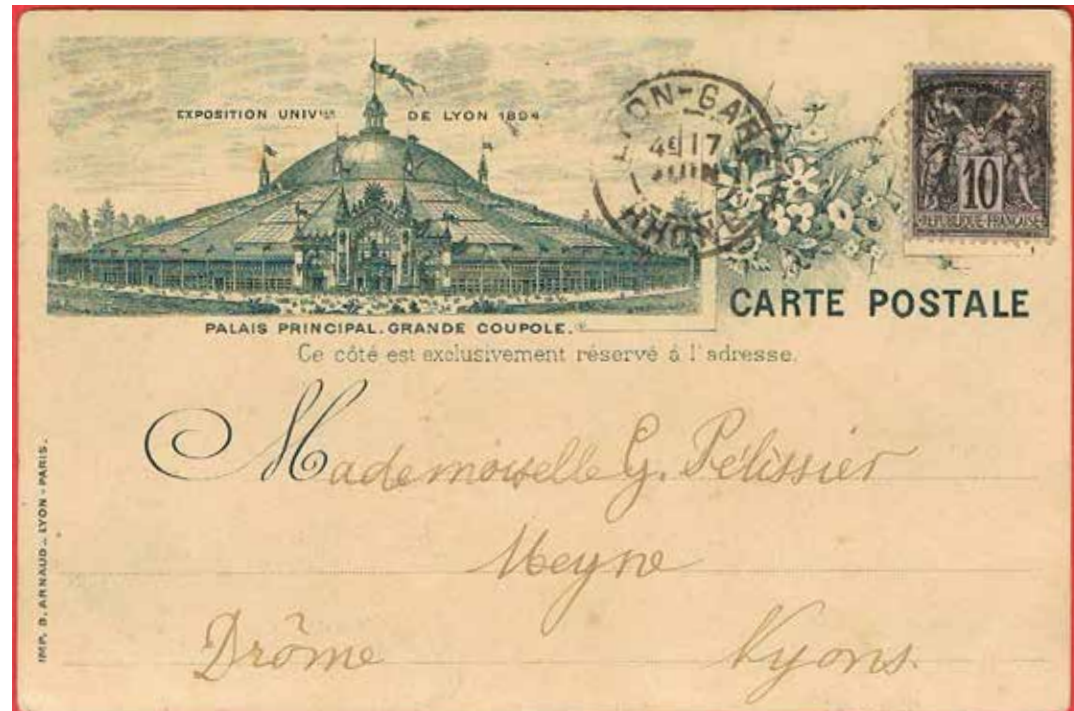 EXPOSITION UNIV^LLE DE LYON 1894
LYON-GARE
17
JUIN
RHONE
10
REPUBLIQUE FRANÇAISE
PALAIS PRINCIPAL. GRANDE COUPOLE.
CARTE POSTALE
Ce côté est exclusivement réservé à l'adresse.
Mademoiselle G. Pélissier
Meyne
Drôme Nyons.
IMP. B. ARNAUD _ LYON - PARIS.